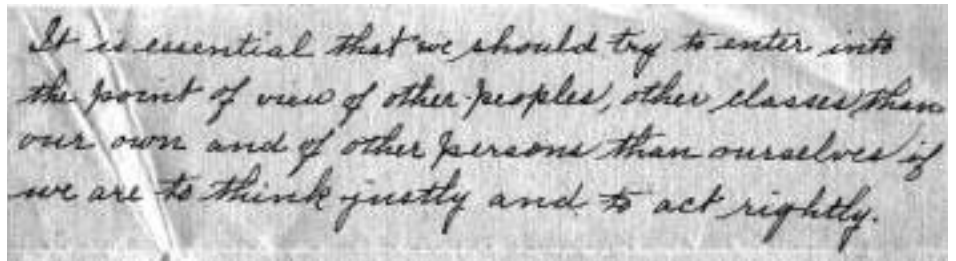 It is essential that we should try to enter into
the point of view of other peoples, other classes than
our own and of other persons than ourselves if
we are to think justly and to act rightly.